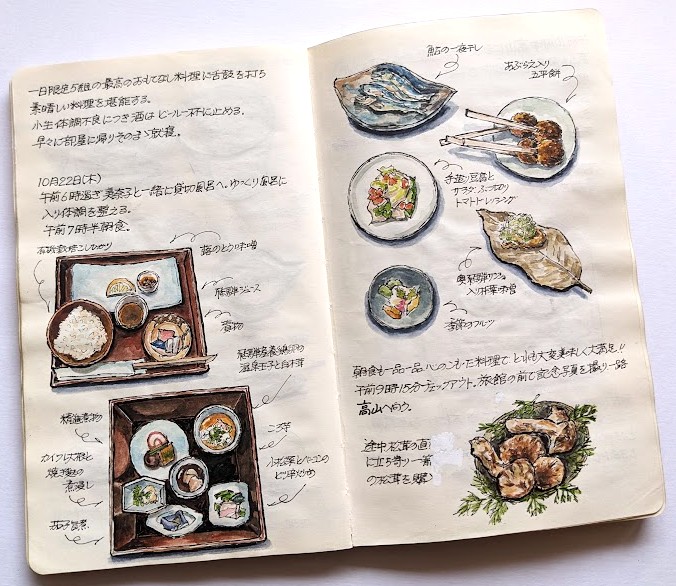 一日限定5組の最高のおもてなし料理に舌鼓を打ち
素晴しい料理を堪能する。
小生体調不良につき酒はビール一杯に止める。
早々に部屋に帰りそのまゝ就寝。
10月22日(木)
午前6時過ぎ美奈子と一緒に貸切風呂へ。ゆっくり風呂に
入り体調を整える。
午前7時半朝食。
有機栽培こしひかり
蕗のとう味噌
飛騨
ジュース
煮物
温泉玉子
精進煮物
ころ芋
カイワレ大根と
焼き
の
煮浸し
小松菜とベーコンの
ピリ辛炒め
茄子
鮎の一夜干し
あぶらえ入り
五平餅
手造り豆腐と
サラダ
トマトドレッシング
奥飛騨
入り朴葉味噌
季節のフルーツ
朝食も一品一品心のこもった料理でとても大変美味しく大満足!!
午前9時15分チェックアウト。旅館の前で記念写真を撮り一路
高山へ向う。
途中松茸の店
に立ち寄り一篭
の松茸を購入